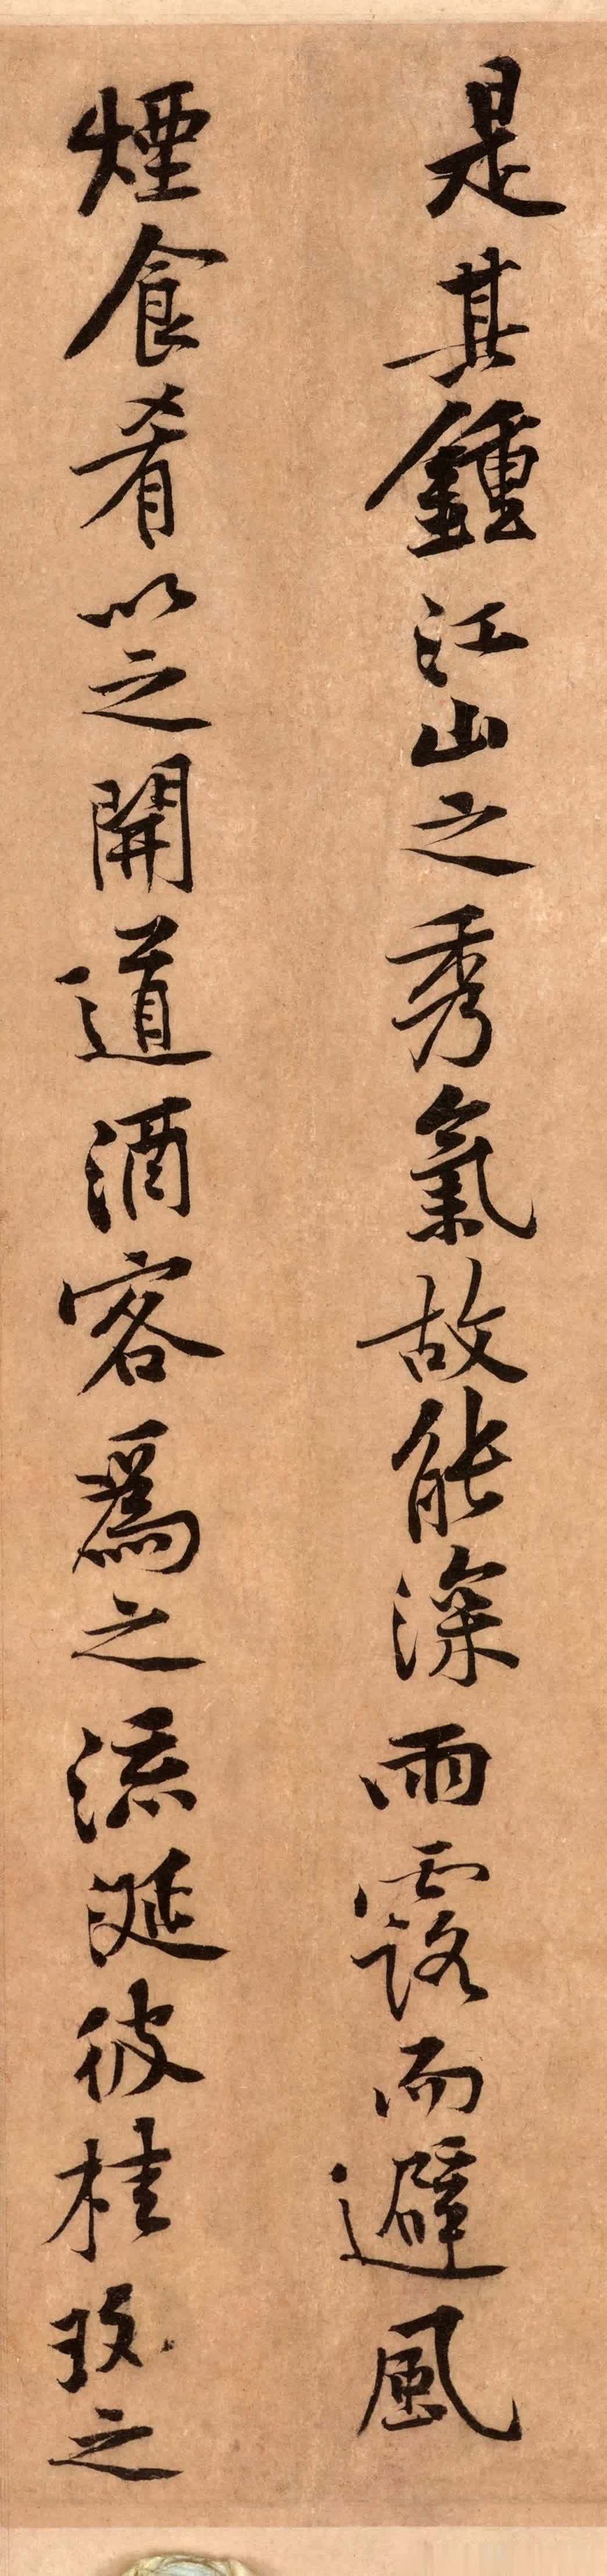 是其鍾江山之秀氣故能深雨露而避風
煙食肴以之開道酒客為之流涎彼桂玫之